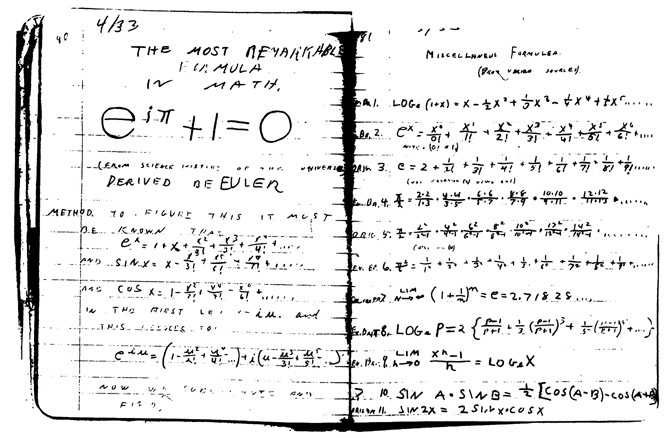 4/33
THE MOST REMARKABLE
FORMULA
IN MATH.
e^{iπ} + 1 = 0
(FROM SCIENCE HISTORY OF THE UNIVERSE)
DERIVED BE EULER
METHOD. TO FIGURE THIS IT MUST
BE KNOWN THAT
e^x = 1 + x + x²/2! + x³/3! + x⁴/4! + ....
AND SIN X = x - x³/3! + x⁵/5! - x⁷/7! + ....
AND COS X = 1 - x²/2! + x⁴/4! - x⁶/6! + ......
IN THE FIRST LET and
THIS TO
e^{iu} = (1 - u²/2! + u⁴/4! ...) + i(u - u³/3! + u⁵/5! ...)
NOW WE SUBSTITUTE AND
FIND.
81
MISCELLANEUS FORMULEA.
(FROM VARIED SOURCES).
1. LOGe (1+x) = x - ½x² + ⅓x³ - ¼x⁴ + ⅕x⁵ ......
2. e^x = x⁰/0! + x¹/1! + x²/2! + x³/3! + x⁴/4! + x⁵/5! + x⁶/6! + .....
NOTE (0! = 1)
3. e = 2 + 1/2! + 1/3! + 1/4! + 1/5! + 1/6! + 1/7! + 1/8! + 1/9! ......
4. π/2 = 2·2/1·3 · 4·4/3·5 · 6·6/5·7 · 8·8/7·9 · 10·10/9·11 · 12·12/11·13 .....
ORIG. 5. π/2 = 2²/2²-1 · 4²/4²-1 · 6²/6²-1 · 8²/8²-1 · 10²/10²-1 · 12²/12²-1 · 14²/14²-1 .....
6.
7. LIM n→∞ (1 + 1/n)^n = e = 2.71828....
8. LOGe P = 2 {(P-1)/(P+1) + 1/3 ((P-1)/(P+1))³ + 1/5 ((P-1)/(P+1))⁵ + ...}
9. LIM h→0 (x^h - 1)/h = LOGe X
? 10. SIN A · SIN B = ½ [COS(A-B) - COS(A+B)]
11. SIN 2X = 2 SIN X · COS X